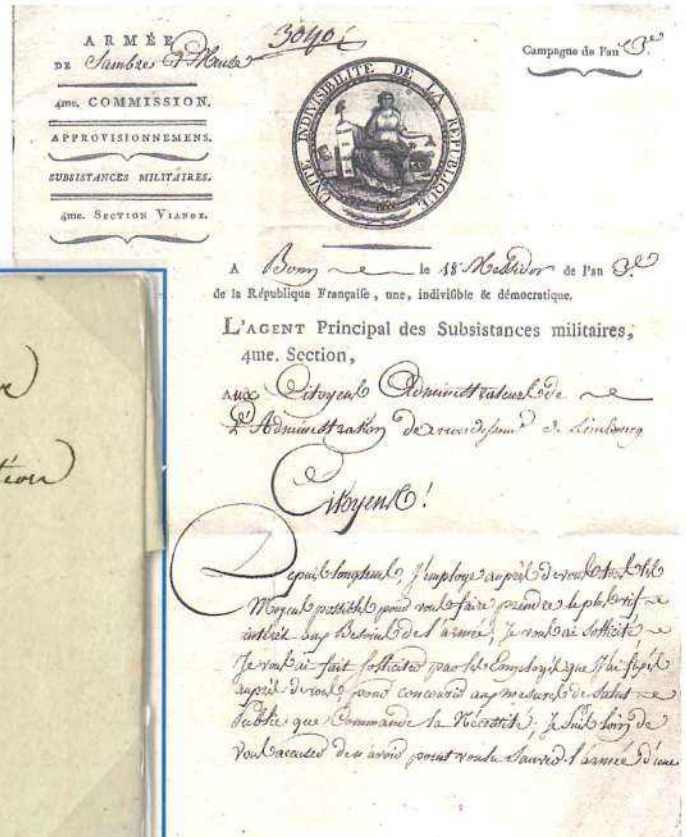 ARMÉE
DE Sambre & Meuse
3040
4me. COMMISSION.
APPROVISIONNEMENS.
SUBSISTANCES MILITAIRES.
4me. SECTION VIANDE.
Campagne de l'an 3.e
UNITÉ INDIVISIBILITÉ DE LA RÉPUBLIQUE
A Bonn le 18 Messidor de l'an 3.e
de la République Française, une, indivisible & démocratique.
L'AGENT Principal des Subsistances militaires,
4me. Section,
AUX Citoyens Administrateurs de
L'Administration d'arrondissemt de Limbourg
Citoyens!
Depuis longtems, J'employe auprès de vous tous les
Moyens possibles pour vous faire prendre le plus vif
intérêt aux Besoins de l'armée, Je vous ai sollicité
Je vous ai fait solliciter par les Employés que J'ai fixés
auprès de vous, pour concourir aux mesures de Salut
Public que Commande la Nécessité; Je suis loin de
Vous accuser de n'avoir point voulu Sauver l'armée d'une
tion